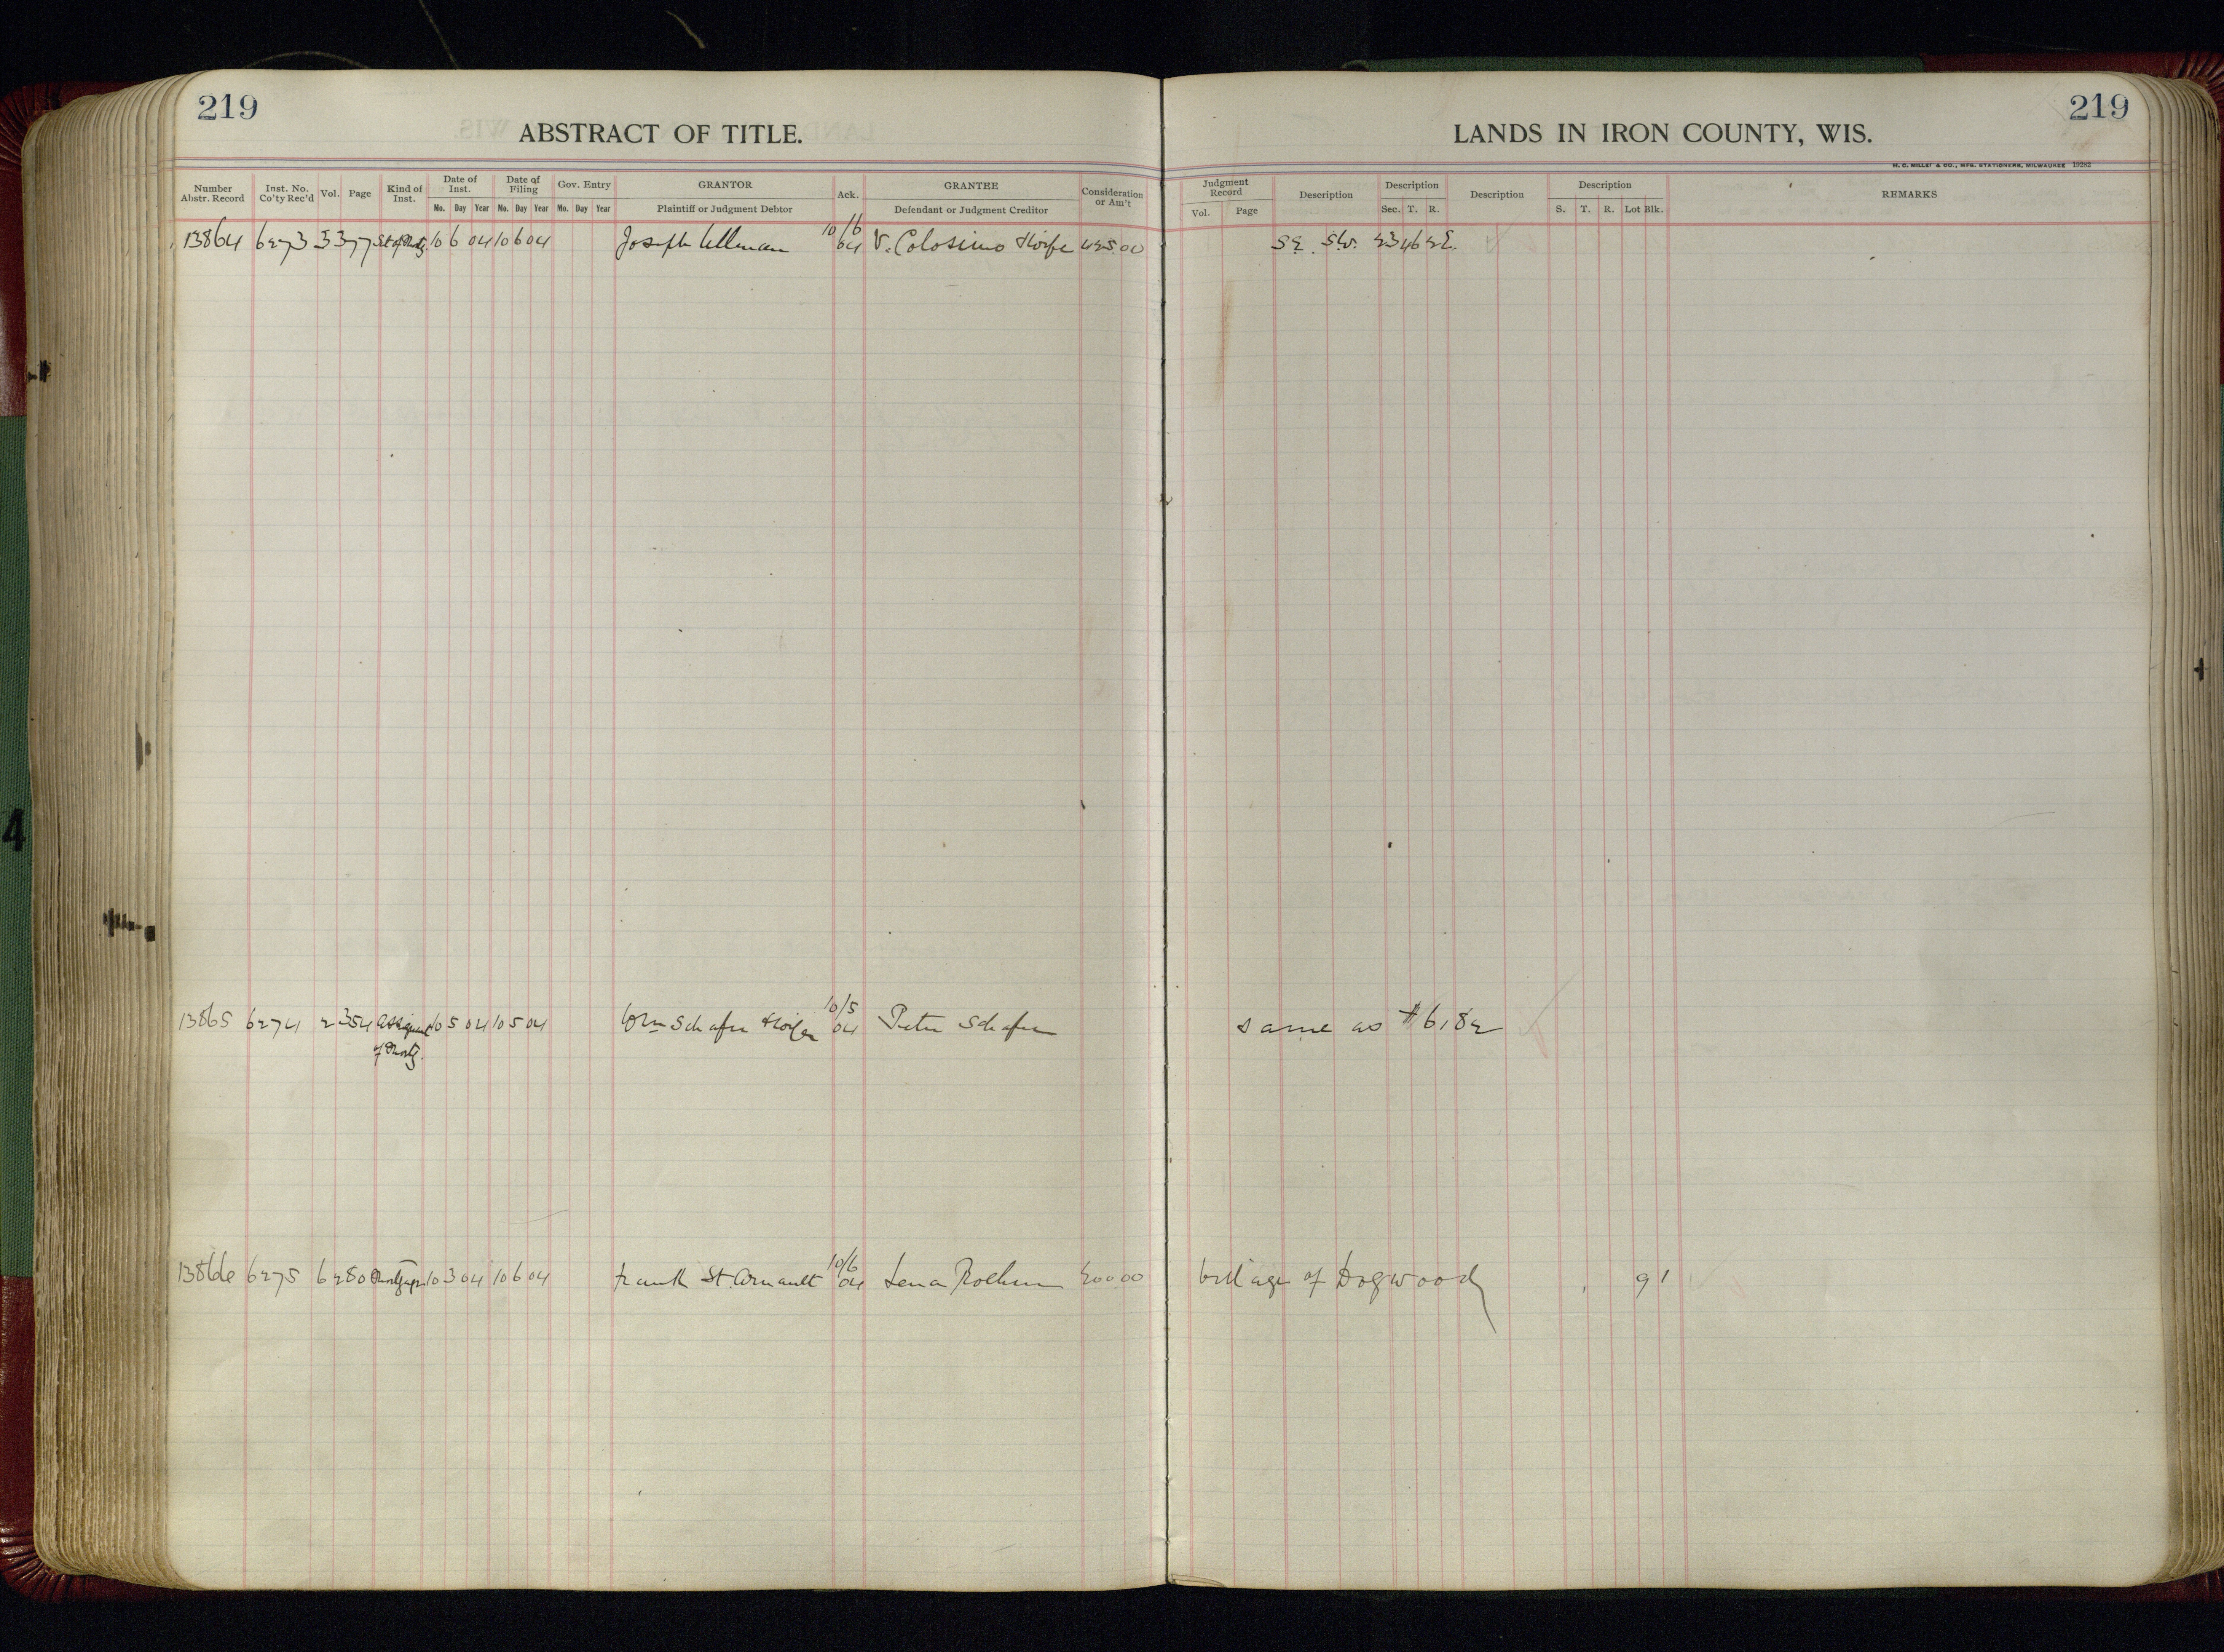 219
219
ABSTRACT OF TITLE.
LANDS IN IRON COUNTY, WIS.
H. C. MILLER & CO., MFG. STATIONERS, MILWAUKEE 19282
Number Abstr. Record Inst. No. Co'ty Rec'd Vol. Page Kind of Inst. Date of Inst. Date of Filing Gov. Entry GRANTOR Ack. GRANTEE Consideration or Am't Judgment Record Description Description Description Description REMARKS
Mo. Day Year Mo. Day Year Mo. Day Year Plaintiff or Judgment Debtor Defendant or Judgment Creditor Vol. Page Sec. T. R. S. T. R. Lot Blk.
13864 6273 3 377 10 6 04 10 6 04 Joseph Ullman 10/6 04 V. Colosimo & wife 425.00 SE SW. 23 46 2E.
13865 6274 2 354 Assignmt of Mortg. 10 5 04 10 5 04 Wm Schafer & wife 10/5 04 Peter Schafer same as #6182
13866 6275 6 280 10 3 04 10 6 04 Frank St. Arnault 10/6 04 Lena 200.00 Village of Dogwood 9 1
4